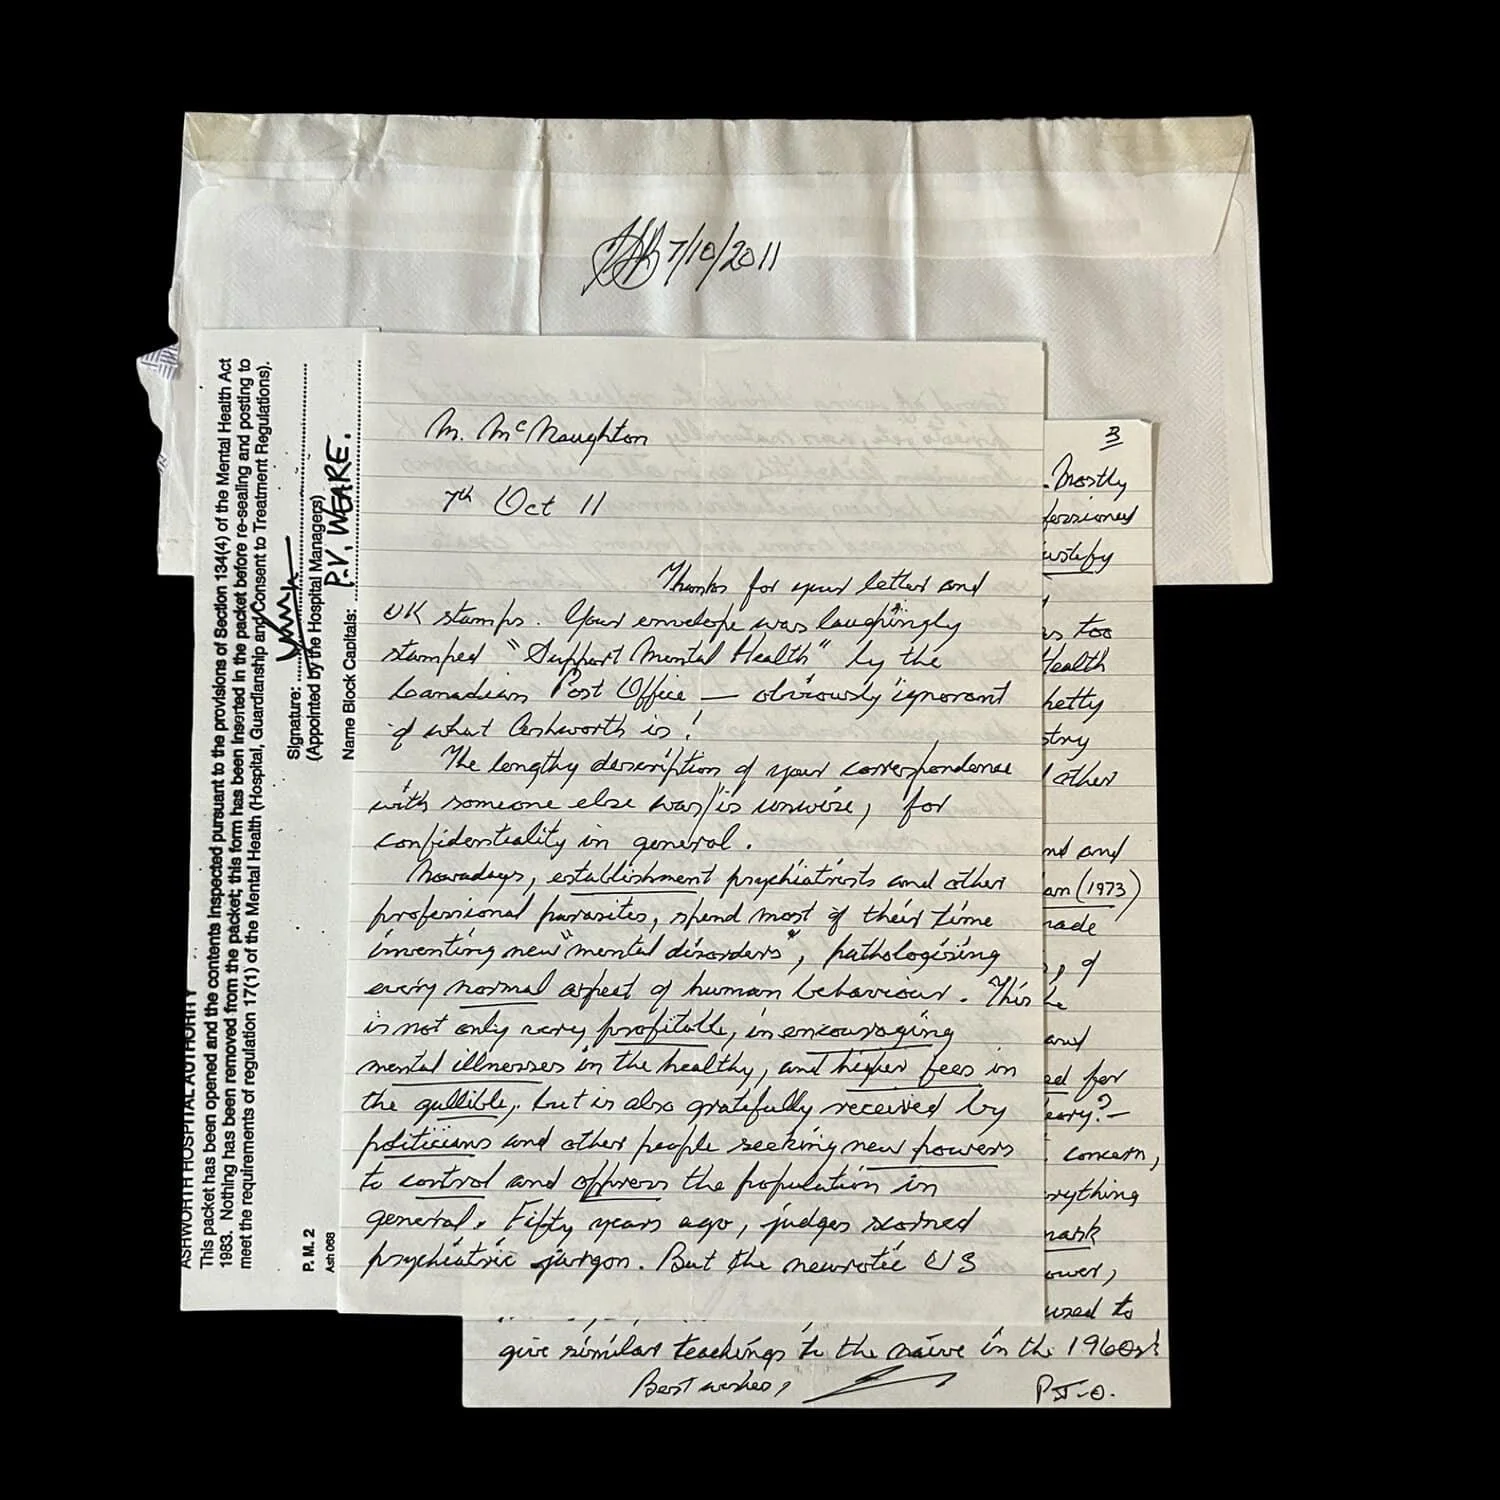 7/10/2011
ASHWORTH HOSPITAL AUTHORITY
This packet has been opened and the contents inspected pursuant to the provisions of Section 134(4) of the Mental Health Act
1983. Nothing has been removed from the packet; this form has been inserted in the packet before re-sealing and posting to
meet the requirements of regulation 17(1) of the Mental Health (Hospital, Guardianship and Consent to Treatment Regulations).
Signature:
(Appointed by the Hospital Managers)
Name Block Capitals: P.V. WEARE.
P. M. 2
Ash 068
M. McNaughton
7th Oct 11
Thanks for your letter and
UK stamps. Your envelope was laughingly
stamped "Support Mental Health" by the
Canadian Post Office — obviously ignorant
of what Ashworth is!
The lengthy description of your correspondence
with someone else was/is unwise, for
confidentiality in general.
Nowadays, establishment psychiatrists and other
professional parasites, spend most of their time
inventing new "mental disorders", pathologising
every normal aspect of human behaviour. This
is not only very profitable, in encouraging
mental illnesses in the healthy, and higher fees in
the gullible, but is also gratefully received by
politicians and other people seeking new powers
to control and oppress the population in
general. Fifty years ago, judges scorned
psychiatric jargon. But the neurotic US
3
. Mostly
fessioned
ustify
as too
Health
hetty
stry
other
nd and
an (1973)
nade
, of
he
and
ed for
eary?—
concern,
rything
mark
ower,
used to
give similar teachings to the naive in the 1960s!
Best wishes,
P.T.O.